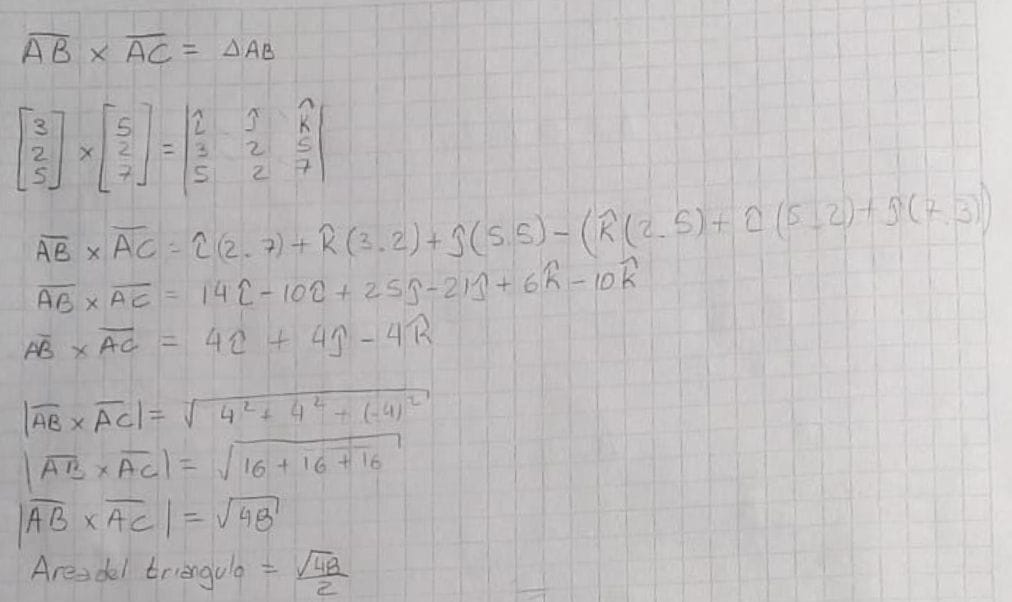 AB × AC = ΔAB
[3 2 5] × [5 2 7] = |î ĵ k̂ 3 2 5 5 2 7|
AB × AC = î(2.7) + k̂(3.2) + ĵ(5.5) - (k̂(2.5) + î(5.2) + ĵ(7.3))
AB × AC = 14î - 10î + 25ĵ - 21ĵ + 6k̂ - 10k̂
AB × AC = 4î + 4ĵ - 4k̂
|AB × AC| = √4² + 4⁴ + (-4)²
|AB × AC| = √16 + 16 + 16
|AB × AC| = √48
Area del triangulo = √48/2